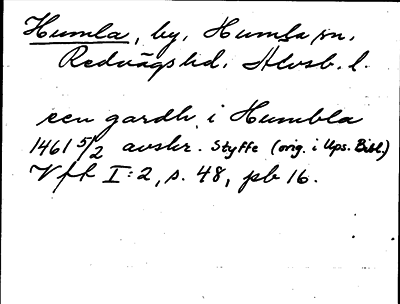 Humla, by, Humla sn.
Redvägs hd. Älvsb. l.
een gardh i Humbla
1461 5/2 avskr. Styffe (orig. i Ups. Bibl.)
Vfk I:2, s. 48, pb 16.